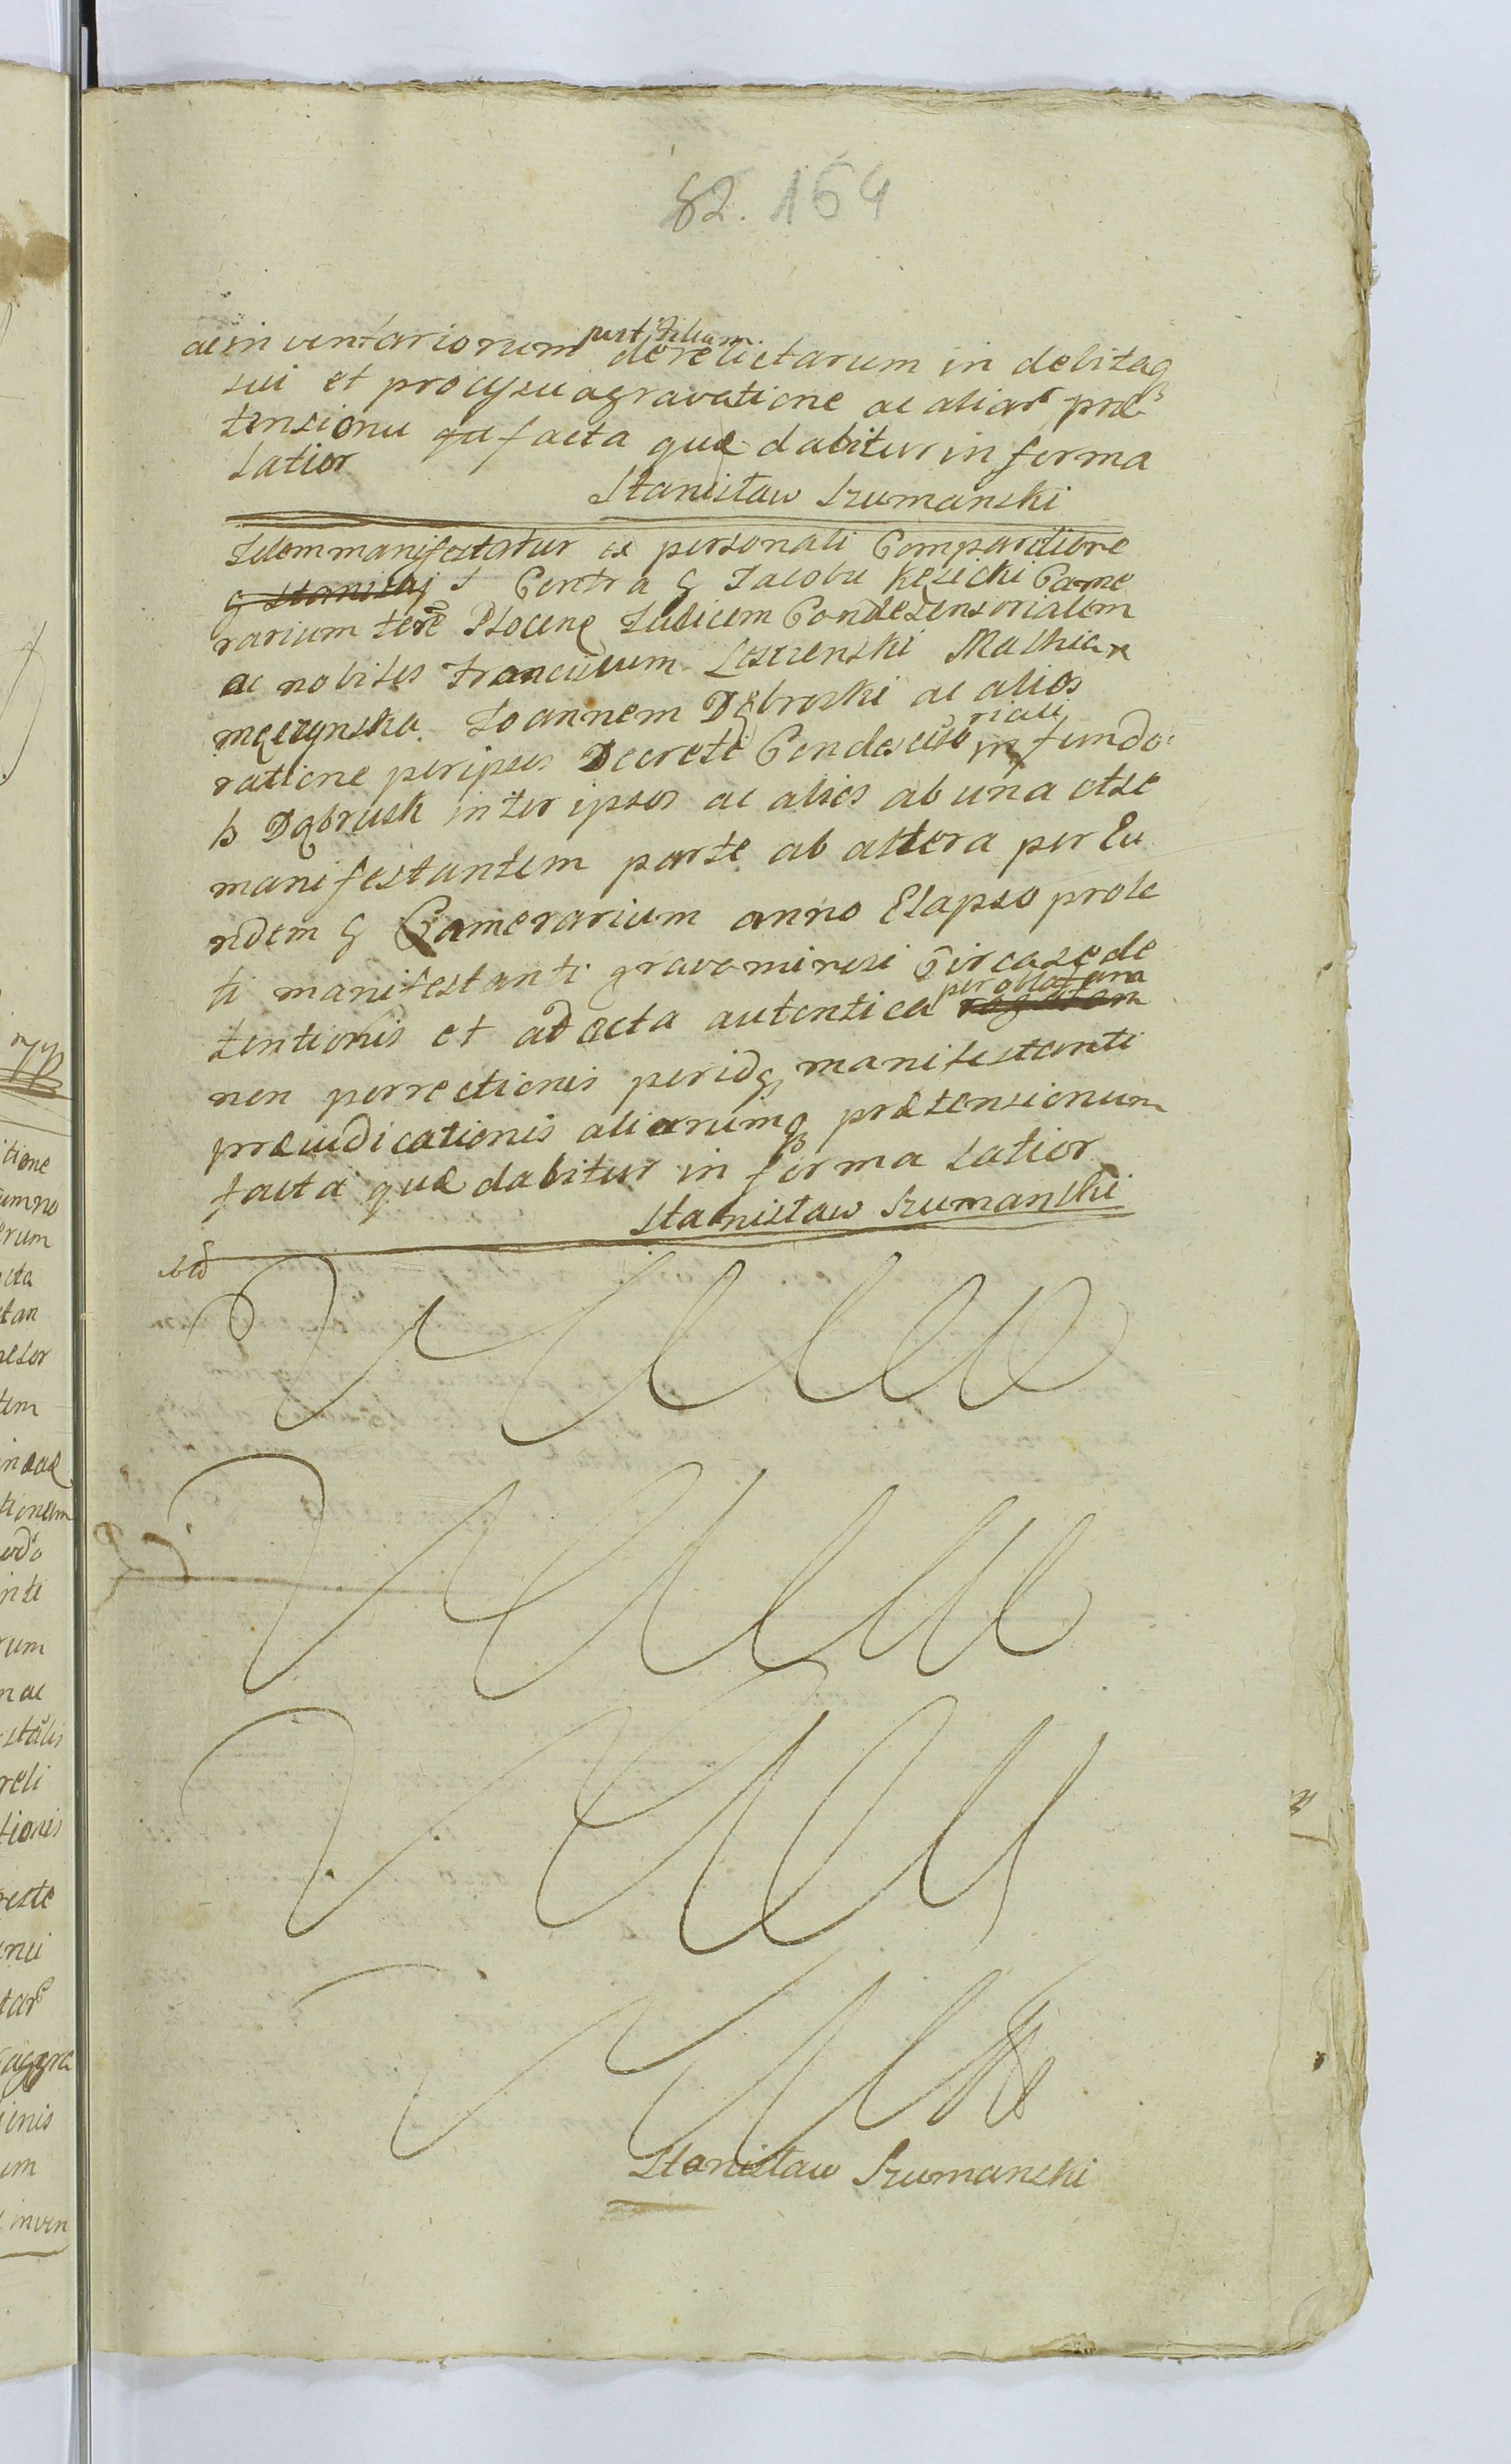 82. 164
ac inventariorum post filium derelictarum in debitaq
sui et processu agravatione ac aliar prae
tensionu qa facta quae dabitur in forma
latior
Stanisław Szumanski
Idem manifestatur ex personali Comparitione
G Stanislaj s Contra G Jacobu Kęsicki Came
rarium terre Plocenẹ Judicem Condescensorialem
ac nobiles Franciscum Leszczenski Mathia
męczynska Joannem Dębroski ac alios
ratione per ipsos Decreti Condescensoriali in fundo
b Dąbrusk inter ipsos ac alios ab una et se
manifestantem parte ab altera per Eu
ndem G Camerarium anno Elapso prole
ti manifestanti gravaminosi Circa se de
tentionis et ad acta autentica per oblatam
non porrectionis peridq manifestanti
praeiudicationis aliarumq praetensionum
facta quae dabitur in forma latior
Stanisław Szumanski
Stanisław Szumanski
itione
umno
erum
cta
tan
tem
tionem
nti
rum
n ac
reli
tionis
este
aggra
ionis
um
inven